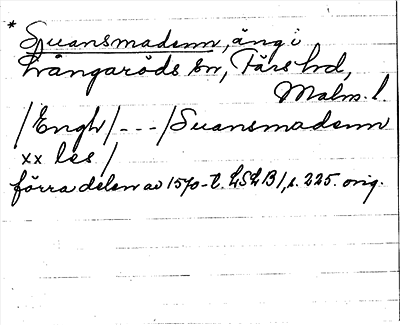 * Suansmadenn, äng i
Långaröds sn, Färs hd,
Malm. l.
/Engh/ - - - /Suansmadenn
xx les /
förra delen av 1570-t. LSLB1, s. 225. orig.